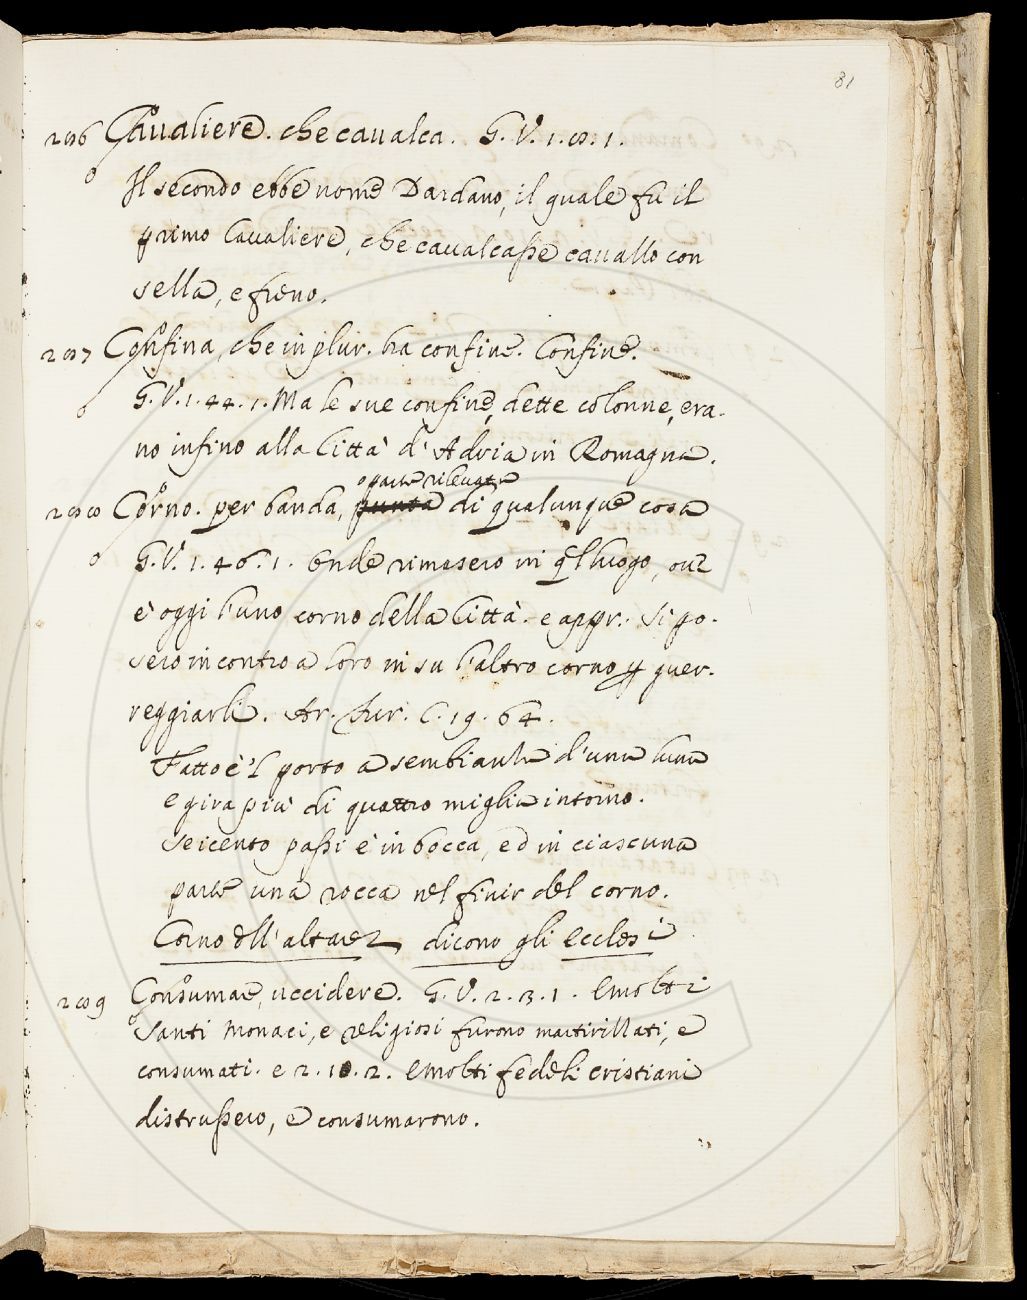 81
286 Caualiere. che caualca. G. V. 1. 8. 1.
Il secondo ebbe nome Dardano, il quale fu il
primo Caualiere, che caualcasse cauallo con
sella, e freno.
287 Confina, che in plur. ha confine. Confine.
G. V. 1. 44. 1. Ma le sue confine, dette colonne, era-
no infino alla Città d' Adria in Romagna.
parte rileuata
288 Corno. per banda, punta di qualunque cosa
G. V. 1. 46. 1. Onde rimasero in ql luogo, oue
è oggi l'uno corno della Città. e appr. Si po-
sero incontro a loro in su l'altro corno p guer-
reggiarli. Ar. Fur. C. 19. 64.
Fatto è 'l porto a sembianza d'una luna
e gira più di quattro miglia intorno.
Seicento passi è in bocca, ed in ciascuna
parte una rocca nel finir del corno.
Corno dll' altare dicono gli ecclesi
289 Consumare, uccidere. G. V. 2. 3. 1. E molti
Santi Monaci, e religiosi furono martirillati, e
consumati. e 2. 10. 2. E molti fedeli cristiani
distrussero, e consumarono.